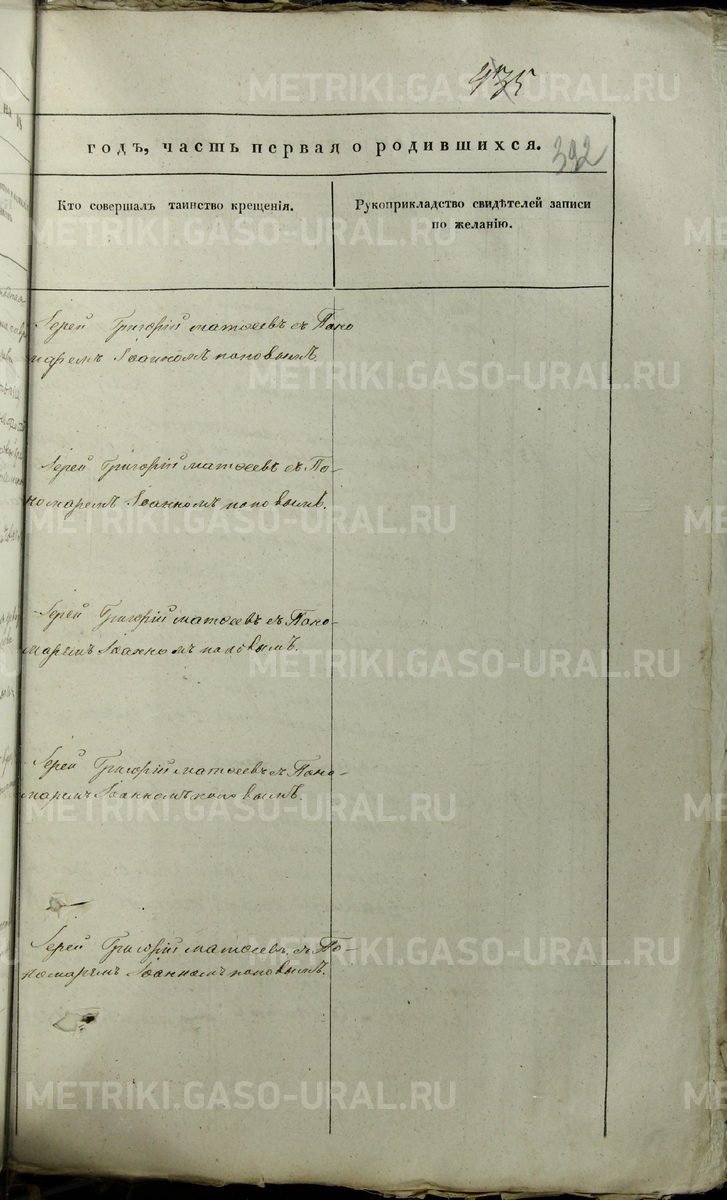 435
392
годъ, часть первая о родившихся.
Кто совершалъ таинство крещенія.
Рукоприкладство свидѣтелей записи
по желанію.
Іерей Григорій Матѳеевъ съ Поно
маремъ Іоанномъ Поповымъ.
Іерей Григорій Матѳеевъ съ По-
номаремъ Іоанномъ Поповымъ.
Іерей Григорій Матѳеевъ съ Поно-
маремъ Іоанномъ Поповымъ.
Іерей Григорій Матѳеевъ съ Поно-
маремъ Іоанномъ Поповымъ.
Іерей Григорій Матѳеевъ, съ По-
номаремъ Іоанномъ Поповымъ.
METRIKI.GASO-URAL.RU